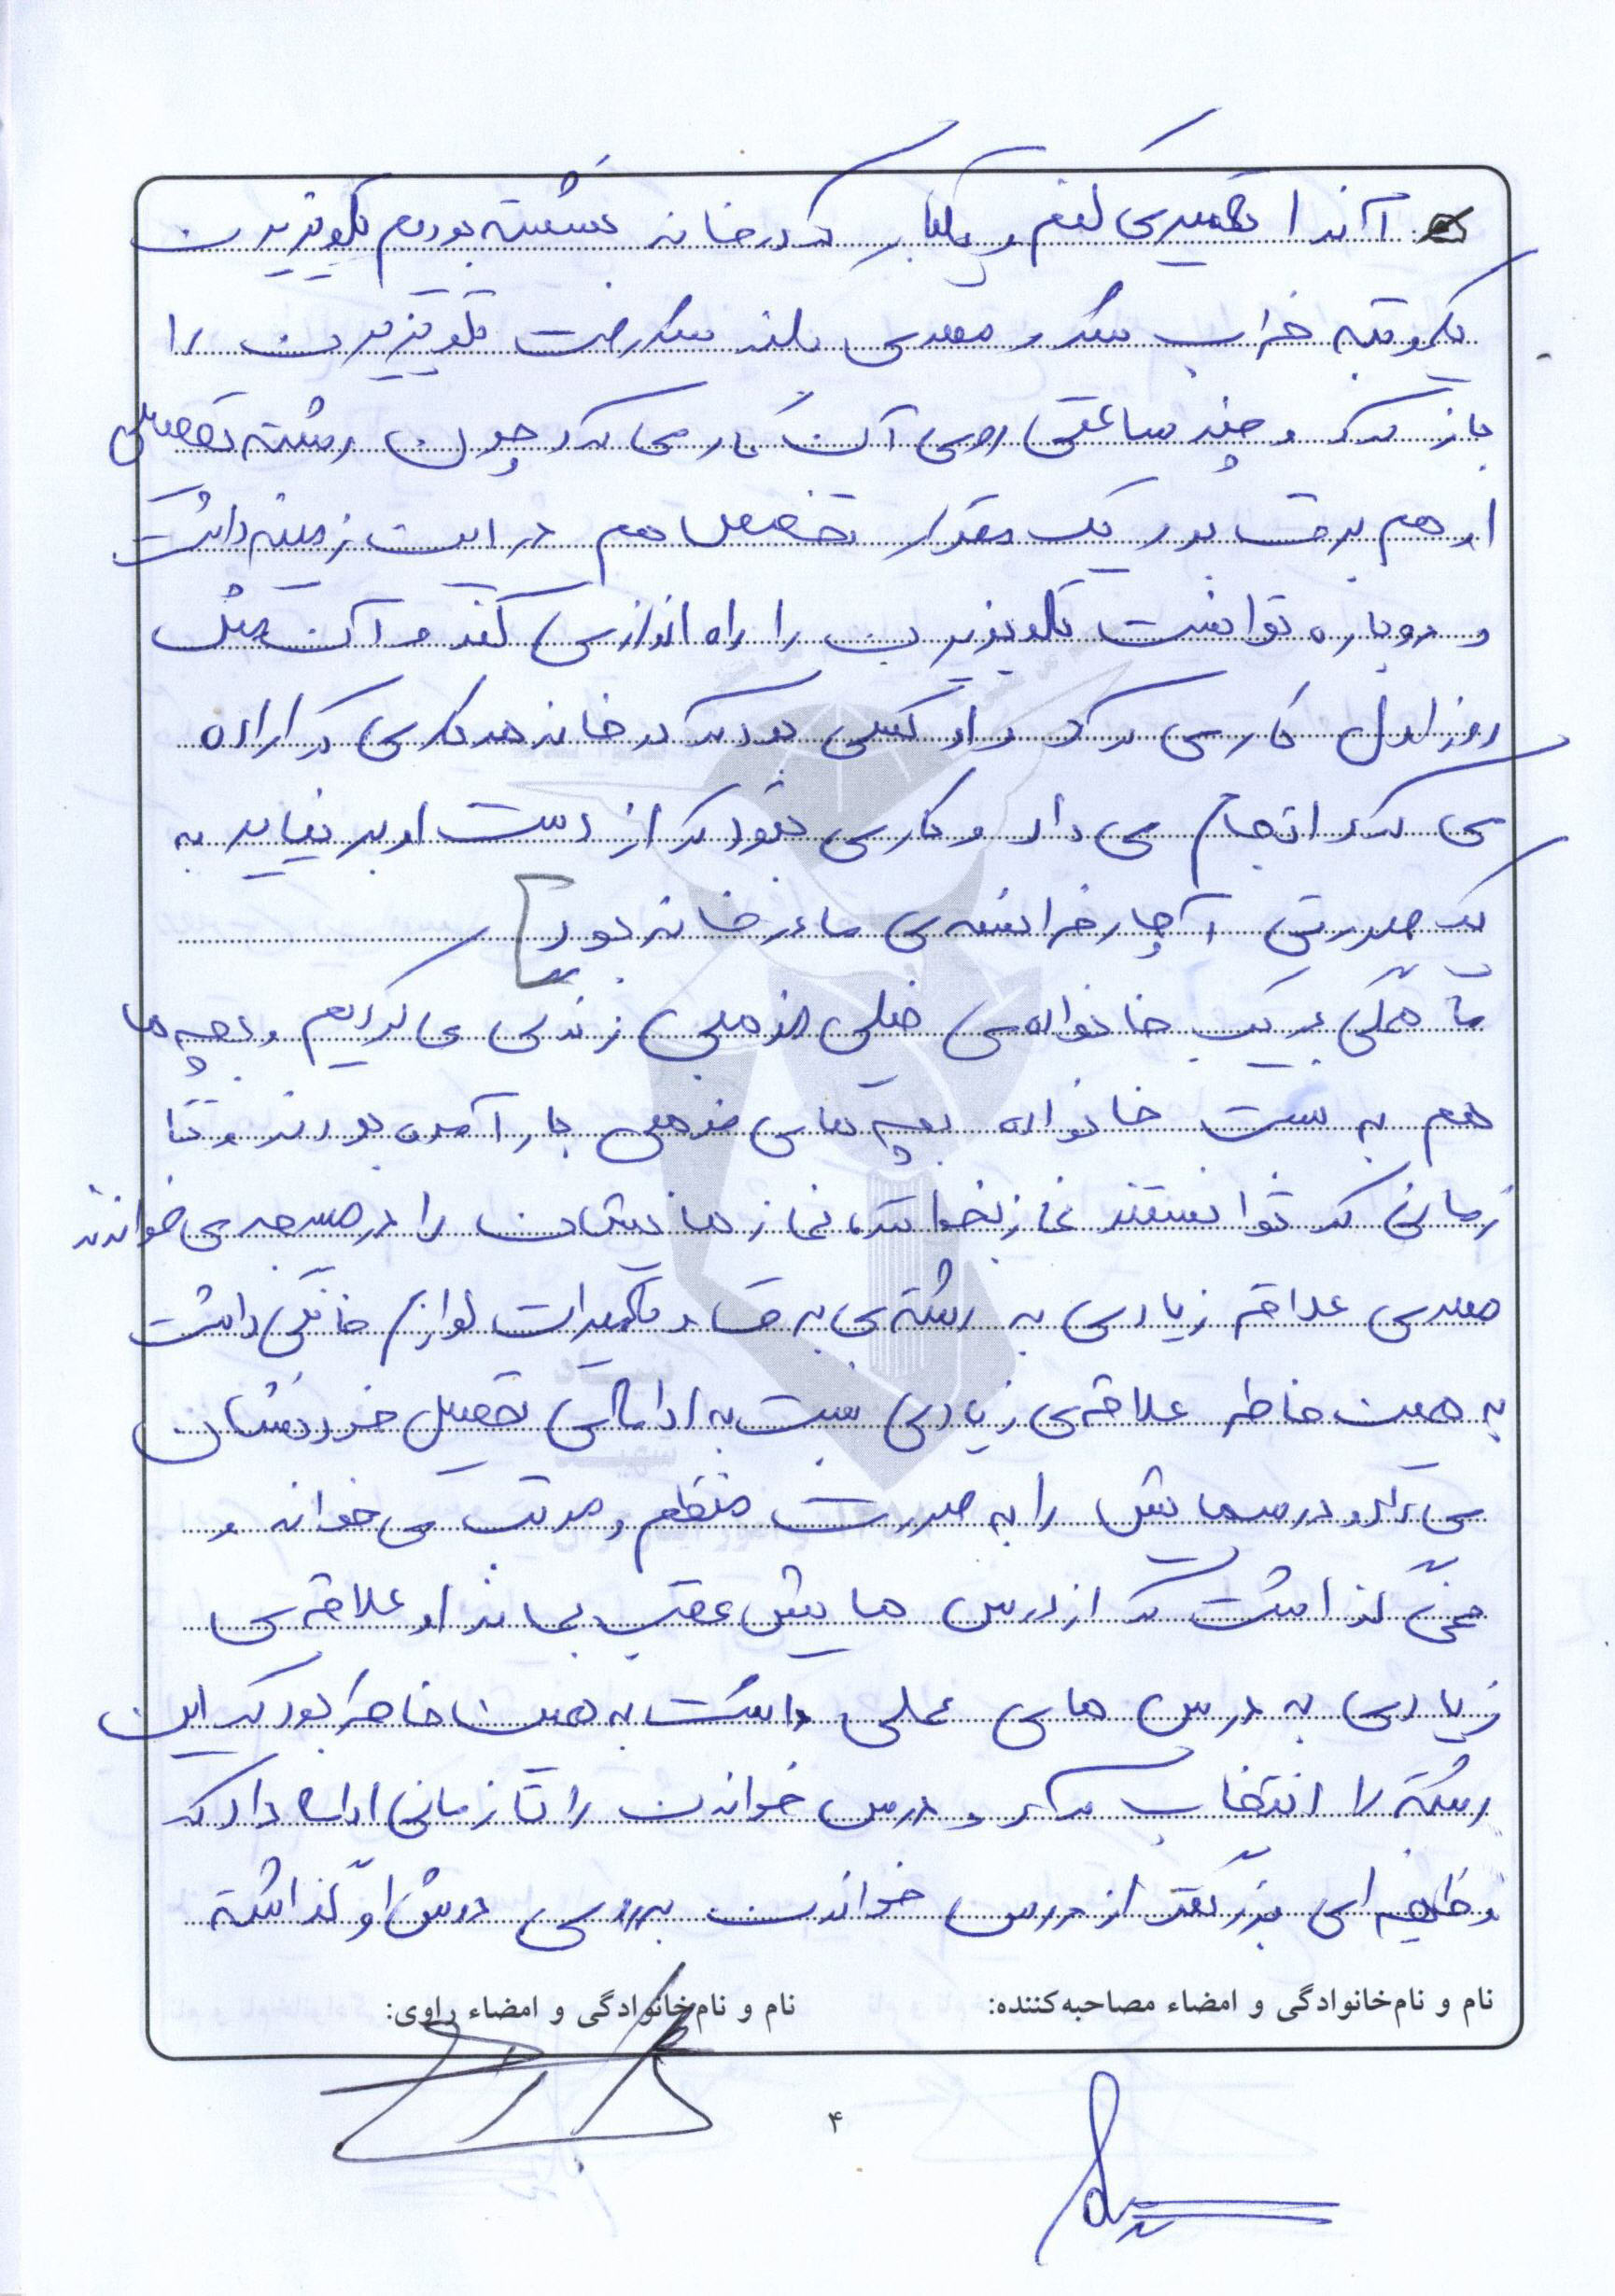 آن را تعمیر می کنم و یکبار که در خانه نشسته بودم تلویزیون
یکمرتبه خراب شد و مهدی بلند شد رفت تلویزیون را
باز کرد و چند ساعتی روی آن کار می کرد چون رشته تحصیلی
او هم برق بود یک مقدار تخصص هم در این زمینه داشت
و دوباره توانست تلویزیون را راه اندازی کند و آن مثل
روز اول کار می کرد و او کسی بود که در خانه هر کاری که اراده
می کرد انجام می داد و کاری نبود که از دست او بر نیاید به
یک صورتی آچار فرانسه ی ما در خانه بود
ما همگی در یک خانواده ی خیلی مذهبی زندگی می کردیم و بچه ها
هم به سنت خانواده بچه های مذهبی بار آمده بودند و تا
زمانی که توانستند نماز بخوانند، نماز هایشان را در مسجد می خواندند
مهدی علاقه زیادی به رشته ی برق و تعمیرات لوازم خانگی داشت
به همین خاطر علاقه ی زیادی نسبت به ادامه ی تحصیل خود نشان
می داد و درسهایش را به صورت منظم و مرتب می خواند و
نمی گذاشت که از درس هایش عقب بماند او علاقه ی
زیادی به درس های عملی داشت به همین خاطر بود که این
رشته را انتخاب کرد و درس خواندن را تا زمانی ادامه داد که
وظیفه ای بزرگتر از درس خواندن بر روی دوش او گذاشته
نام و نام‌خانوادگی و امضاء مصاحبه‌کننده: نام و نام‌خانوادگی و امضاء راوی:
۴